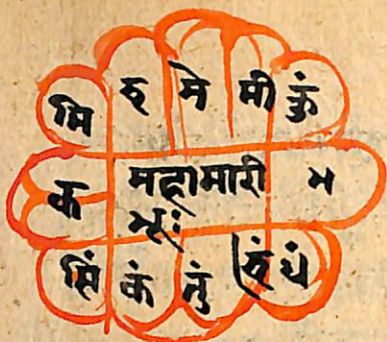 मि वृ मे मी कुं
क महामारी म
भूः
सिं कं तुं वृं धं